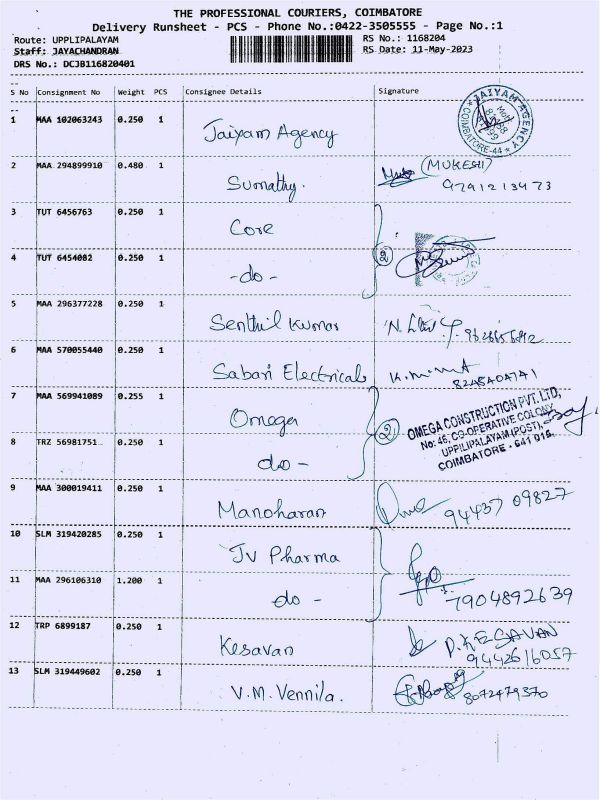 THE PROFESSIONAL COURIERS, COIMBATORE
Delivery Runsheet - PCS - Phone No.:0422-3505555 - Page No.:1
Route: UPPLIPALAYAM RS No.: 1168204
Staff: JAYACHANDRAN RS Date: 11-May-2023
DRS No.: DCJB116820401
S No Consignment No Weight PCS Consignee Details Signature
1 MAA 102063243 0.250 1 Jaiyam Agency JAIYAM AGENCY COIMBATORE-44
2 MAA 294899910 0.480 1 Sumathy. (MUKESH)
9791213473
3 TUT 6456763 0.250 1 Core
4 TUT 6454082 0.250 1 -do- 2
5 MAA 296377228 0.250 1 Senthil Kumar
6 MAA 570055440 0.250 1 Sabari Electricals
8248404741
7 MAA 569941089 0.255 1 Omega 2 OMEGA CONSTRUCTION PVT. LTD,
No: 46, CO-OPERATIVE COLONY
UPPILIPALAYAM (POST),
COIMBATORE - 641 015.
8 TRZ 56981751 0.250 1 do -
9 MAA 300019411 0.250 1 Manoharan 94437 09827
10 SLM 319420285 0.250 1 JV Pharma
11 MAA 296106310 1.200 1 do - 7904892639
12 TRP 6899187 0.250 1 Kesavan P.KESAVAN
9442616057
13 SLM 319449602 0.250 1 V.M. Vennila. 8072479370